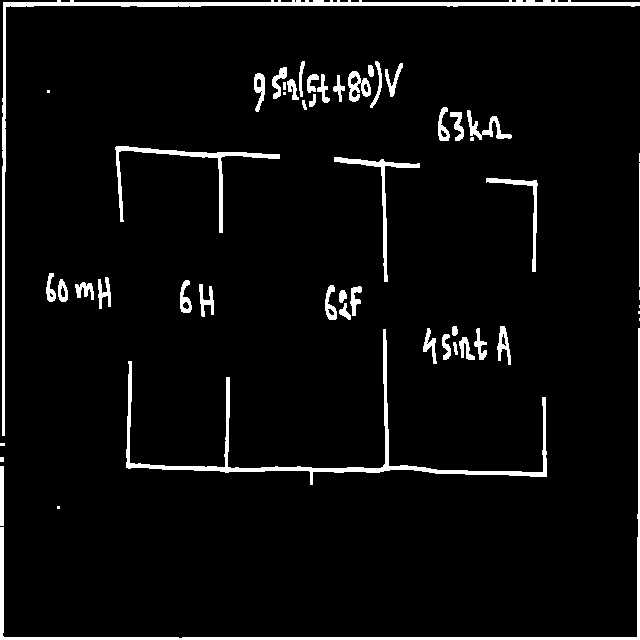 9 sin(5t+80°)V
63kΩ
60mH
6H
62F
4sintA